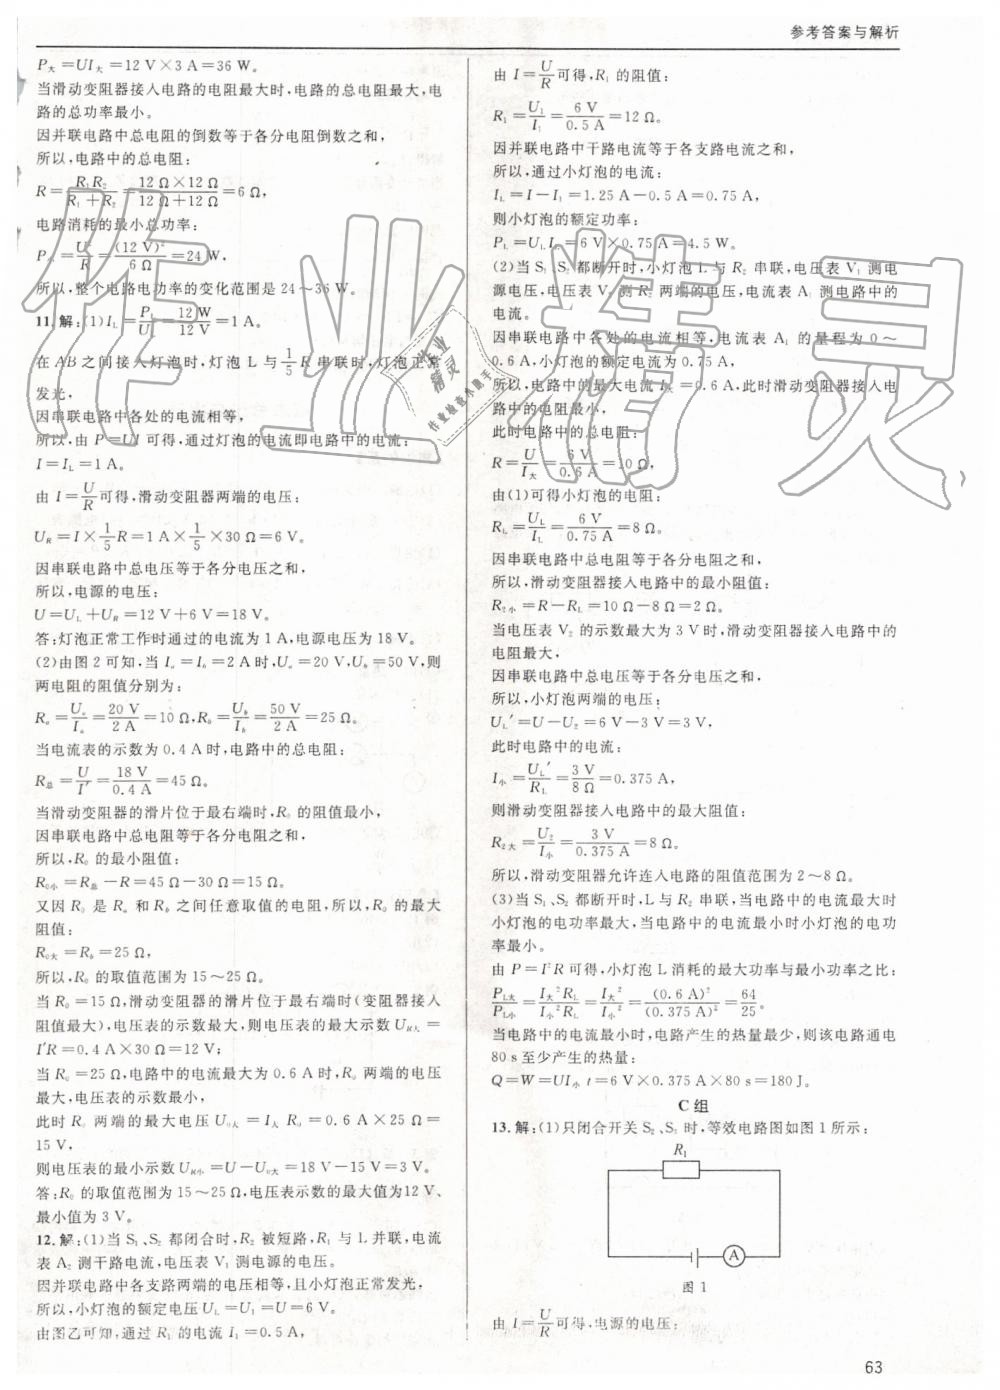 参考答案与解析
P大=UI大=12 V×3 A=36 W。
当滑动变阻器接入电路的电阻最大时,电路的总电阻最大,电
路的总功率最小。
因并联电路中总电阻的倒数等于各分电阻倒数之和,
所以,电路中的总电阻:
R=R₁R₂/(R₁+R₂)=(12 Ω×12 Ω)/(12 Ω+12 Ω)=6 Ω,
电路消耗的最小总功率:
P小=U²/R=(12 V)²/6 Ω=24 W,
所以,整个电路电功率的变化范围是 24～36 W。
11.解:(1)I_L=P_L/U_L=12 W/12 V=1 A。
在 AB 之间接入灯泡时,灯泡 L 与 1/5 R 串联时,灯泡正常
发光,
因串联电路中各处的电流相等,
所以,由 P=UI 可得,通过灯泡的电流即电路中的电流:
I=I_L=1 A。
由 I=U/R 可得,滑动变阻器两端的电压:
U_R=I×1/5 R=1 A×1/5×30 Ω=6 V。
因串联电路中总电压等于各分电压之和,
所以,电源的电压:
U=U_L+U_R=12 V+6 V=18 V。
答:灯泡正常工作时通过的电流为 1 A,电源电压为 18 V。
(2)由图 2 可知,当 I_a=I_b=2 A 时,U_a=20 V,U_b=50 V,则
两电阻的阻值分别为:
R_a=U_a/I_a=20 V/2 A=10 Ω,R_b=U_b/I_b=50 V/2 A=25 Ω。
当电流表的示数为 0.4 A 时,电路中的总电阻:
R总=U/I′=18 V/0.4 A=45 Ω。
当滑动变阻器的滑片位于最右端时,R₀ 的阻值最小,
因串联电路中总电阻等于各分电阻之和,
所以,R₀ 的最小阻值:
R₀小=R总−R=45 Ω−30 Ω=15 Ω。
又因 R₀ 是 R_a 和 R_b 之间任意取值的电阻,所以,R₀ 的最大
阻值:
R₀大=R_b=25 Ω,
所以,R₀ 的取值范围为 15～25 Ω。
当 R₀=15 Ω,滑动变阻器的滑片位于最右端时(变阻器接入
阻值最大),电压表的示数最大,则电压表的最大示数 U_R大=
I′R=0.4 A×30 Ω=12 V;
当 R₀=25 Ω,电路中的电流最大为 0.6 A 时,R₀ 两端的电压
最大,电压表的示数最小,
此时 R₀ 两端的最大电压 U₀大=I大 R₀=0.6 A×25 Ω=
15 V,
则电压表的最小示数 U_R小=U−U₀大=18 V−15 V=3 V。
答:R₀ 的取值范围为 15～25 Ω,电压表示数的最大值为12 V、
最小值为 3 V。
12.解:(1)当 S₁、S₂ 都闭合时,R₂ 被短路,R₁ 与 L 并联,电流
表 A₂ 测干路电流,电压表 V₁ 测电源的电压。
因并联电路中各支路两端的电压相等,且小灯泡正常发光,
所以,小灯泡的额定电压 U_L=U₁=U=6 V。
由图乙可知,通过 R₁ 的电流 I₁=0.5 A,
由 I=U/R 可得,R₁ 的阻值:
R₁=U₁/I₁=6 V/0.5 A=12 Ω。
因并联电路中干路电流等于各支路电流之和,
所以,通过小灯泡的电流:
I_L=I−I₁=1.25 A−0.5 A=0.75 A,
则小灯泡的额定功率:
P_L=U_L I_L=6 V×0.75 A=4.5 W。
(2)当 S₁、S₂ 都断开时,小灯泡 L 与 R₂ 串联,电压表 V₁ 测电
源电压,电压表 V₂ 测 R₂ 两端的电压,电流表 A₁ 测电路中的
电流。
因串联电路中各处的电流相等,电流表 A₁ 的量程为 0～
0.6 A,小灯泡的额定电流为 0.75 A,
所以,电路中的最大电流 I大=0.6 A,此时滑动变阻器接入电
路中的电阻最小,
此时电路中的总电阻:
R=U/I大=6 V/0.6 A=10 Ω,
由(1)可得小灯泡的电阻:
R_L=U_L/I_L=6 V/0.75 A=8 Ω。
因串联电路中总电阻等于各分电阻之和,
所以,滑动变阻器接入电路中的最小阻值:
R₂小=R−R_L=10 Ω−8 Ω=2 Ω。
当电压表 V₂ 的示数最大为 3 V 时,滑动变阻器接入电路中的
电阻最大,
因串联电路中总电压等于各分电压之和,
所以,小灯泡两端的电压:
U_L′=U−U₂=6 V−3 V=3 V,
此时电路中的电流:
I小=U_L′/R_L=3 V/8 Ω=0.375 A,
则滑动变阻器接入电路中的最大阻值:
R₂大=U₂/I小=3 V/0.375 A=8 Ω。
所以,滑动变阻器允许连入电路的阻值范围为 2～8 Ω。
(3)当 S₁、S₂ 都断开时,L 与 R₂ 串联,当电路中的电流最大时
小灯泡的电功率最大,当电路中的电流最小时小灯泡的电功
率最小。
由 P=I²R 可得,小灯泡 L 消耗的最大功率与最小功率之比:
P_L大/P_L小=I大²R_L/I小²R_L=I大²/I小²=(0.6 A)²/(0.375 A)²=64/25。
当电路中的电流最小时,电路产生的热量最少,则该电路通电
80 s至少产生的热量:
Q=W=UI小 t=6 V×0.375 A×80 s=180 J。
C 组
13.解:(1)只闭合开关 S₂、S₃ 时,等效电路图如图 1 所示:
R₁
A
图 1
由 I=U/R 可得,电源的电压:
63
作业精灵
作业精灵
作业检查小助手